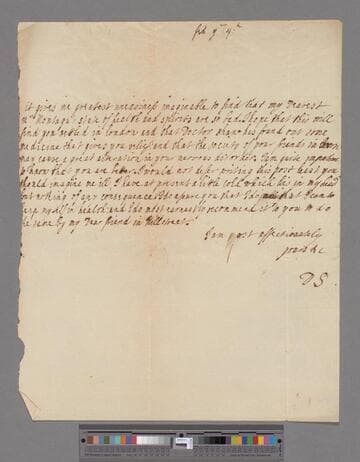 it gives me greatest uneasiness imaginable to find that my Dearest
Mrs Montagu's state of health and spirits are so bad. I hope that this will
find you settled in London and that Doctor Shaw has found out some
medicine that gives you relief and that the society of your friends in Town
may cause a great alteration in your nervous disorders I am quite impatient
to hear that you are better I would not defer writing this post least you
should imagine me ill I have at present a little cold which lies in my head
but nothing of any consequence I do assure you that I do all that I can to
keep myself in health and I do most earnestly recommend it to you to do
the same by my Dear friend in Hill street.
I am most affectionately
yours &c
D S